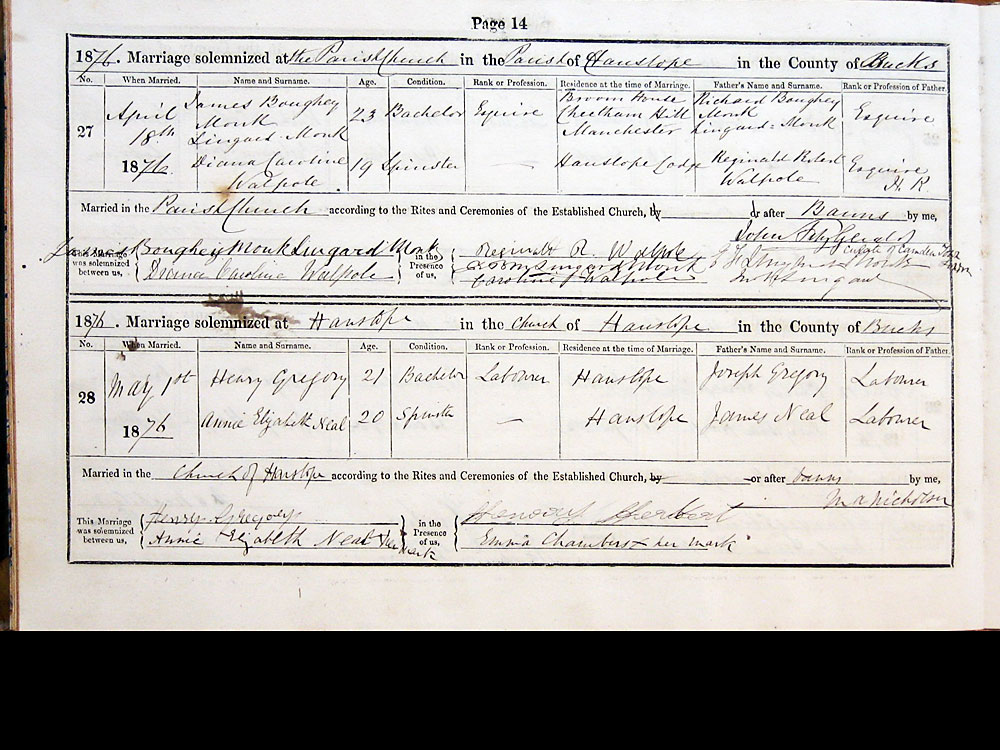 Page 14
1876. Marriage solemnized at the Parish Church in the Parish of Hanslope in the County of Bucks
No. When Married. Name and Surname. Age. Condition. Rank or Profession. Residence at the time of Marriage. Father's Name and Surname. Rank or Profession of Father.
27 April 18th 1876 James Boughey Monk Lingard-Monk 23 Bachelor Esquire Broom House Cheetham Hill Manchester Richard Boughey Monk Lingard-Monk Esquire
Diana Caroline Walpole 19 Spinster — Hanslope Lodge Reginald Robert Walpole Esquire J. P.
Married in the Parish Church according to the Rites and Ceremonies of the Established Church, by or after Banns by me,
John FitzGerald
Curate of Camden Town
This Marriage was solemnized between us, James Boughey Monk Lingard Monk
Diana Caroline Walpole
in the Presence of us, Reginald R. Walpole
Lingard Monk
Caroline Walpole
1876. Marriage solemnized at Hanslope in the Church of Hanslope in the County of Bucks
No. When Married. Name and Surname. Age. Condition. Rank or Profession. Residence at the time of Marriage. Father's Name and Surname. Rank or Profession of Father.
28 May 1st 1876 Henry Gregory 21 Bachelor Labourer Hanslope Joseph Gregory Labourer
Annie Elizabeth Neal 20 Spinster — Hanslope James Neal Labourer
Married in the Church of Hanslope according to the Rites and Ceremonies of the Established Church, by or after banns by me,
M A Nicholson
This Marriage was solemnized between us, Henry Gregory
Annie + Elizabeth Neal her mark
in the Presence of us, Henry Herbert
Emma Chambers + her mark